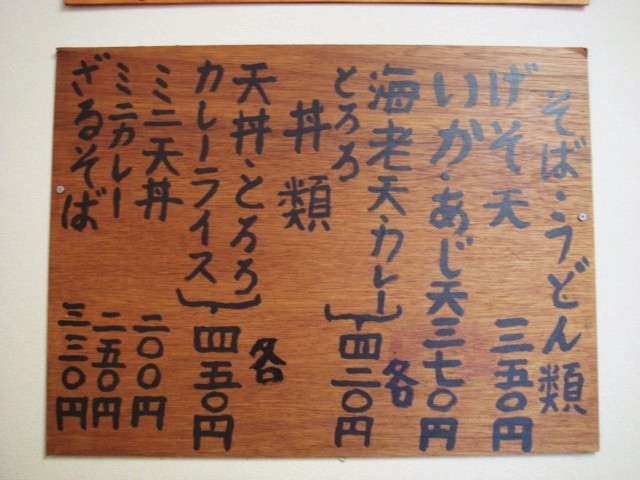 そば・うどん類
げそ天 三五〇円
いか・あじ天三七〇円
海老天・カレー
とろろ
各
四二〇円
丼類
天丼・とろろ
カレーライス
各
四五〇円
ミニ天丼 二〇〇円
ミニカレー 二五〇円
ざるそば 三三〇円